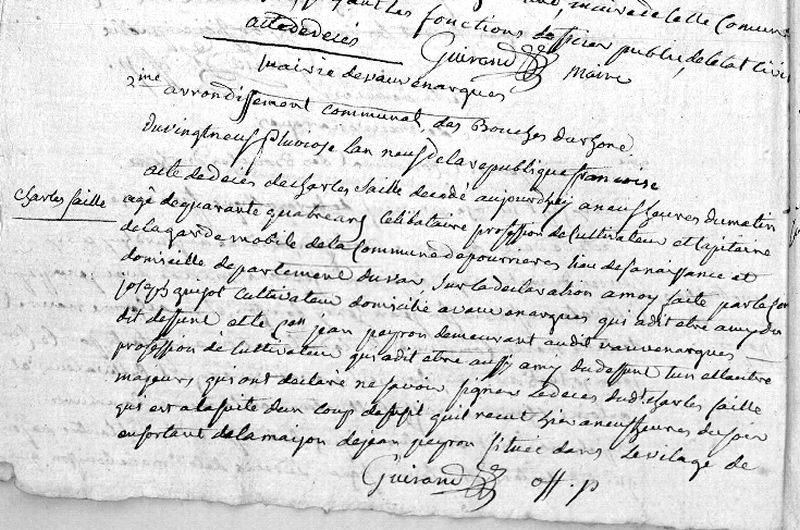 faisant les fonctions dofficier public de letat Civil
acte de deces
Guirand Maire
mairie devauvenarques
2me arrondissement communal des Bouches du rhone
du vingt neuf pluviose lan neuf de la republique francoise
acte de deces de charles saille decedé aujourdhuy a neuf heures du matin
charles saille
agé de quarante quatre ans celibataire profession de Cultivateur et Capitaine
de la garde mobile de la Commune de pourrieres lieu de sa naissance et
domicille departement du var, sur la declaration a moy faite par le Con
joseph guizot Cultivateur domicilié a vauvenarques qui a dit etre amy du
dit deffunt et le Cen jean peyron demeurant audit vauvenarques
profession de Cultivateur qui a dit etre aussy amy du defunt lun et lautre
majeurs, qui ont declaré ne savoir signer Le deces dudt charles saille
qui est a la suite dun coup de fusil quil recut hier a neuf heures du soir
en sortant de la maison de jean peyron située dans Le vilage de
Guirand off. p